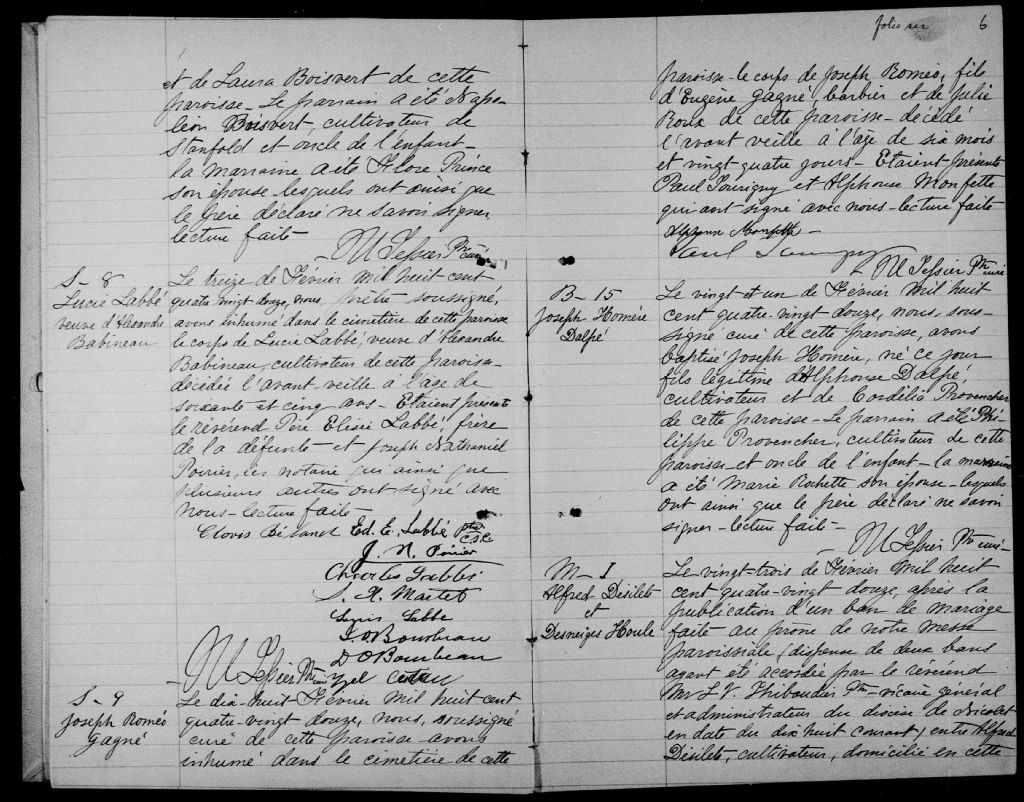 et de Laura Boisvert de cette
paroisse - Le parrain a été Napo-
léon Boisvert, cultivateur de
Stanfold et oncle de l'enfant -
la marraine a été Flore Prince
son épouse lesquels ont ainsi que
le père déclaré ne savoir signer
lecture faite -
M Tessier Ptre curé
S - 8
Lucie Labbé
veuve d'Alexandre
Babineau
Le treize de Février mil huit cent
quatre vingt douze, nous, prêtre soussigné,
avons inhumé dans le cimetière de cette paroisse
le corps de Lucie Labbé, veuve d'Alexandre
Babineau, cultivateur de cette paroisse -
décédée l'avant veille à l'âge de
soixante et cinq ans - Etaient présents
le révérend Père Elisée Labbé, frère
de la défunte - et Joseph Nathaniel
Poirier, notaire qui ainsi que
plusieurs autres ont signé avec
nous - lecture faite -
Clovis Béland Ed. E. Labbé Ptre
C.S.C.
J. N. Poirier
Charles Labbé
Louis Labbé
J O Bourbeau
D O Bourbeau
M Tessier Ptre curé
S - 9
Joseph Roméo
Gagné
Le dix-huit Février mil huit cent
quatre-vingt douze, nous, soussigné
curé de cette paroisse avons
inhumé dans le cimetière de cette
folio six 6
paroisse - le corps de Joseph Roméo, fils
d'Eugène Gagné, barbier et de Julie
Roux de cette paroisse - décédé
l'avant veille à l'âge de six mois
et vingt-quatre jours - Etaient présents
Paul Tourigny et Alphonse Monfette
qui ont signé avec nous - lecture faite
Alphonse Monfette
Paul Tourigny
M Tessier Ptre curé
B - 15
Joseph Homère
Dalpé
Le vingt et un de Février mil huit
cent quatre-vingt douze, nous, sous-
signé curé de cette paroisse, avons
baptisé Joseph Homère, né ce jour
fils légitime d'Alphonse Dalpé,
cultivateur et de Cordélia Provencher
de cette paroisse - Le parrain a été Phi-
lippe Provencher, cultivateur de cette
paroisse et oncle de l'enfant - la marraine
a été Marie Rochette son épouse - lesquels
ont ainsi que le père déclaré ne savoir
signer - lecture faite -
M Tessier Ptre curé -
M - 1
Alfred Désilets
et
Desneiges Houle
Le vingt-trois de Février mil huit
cent quatre-vingt douze, après la
publication d'un ban de mariage
faite au prône de notre messe
paroissiale (dispense de deux bans
ayant été accordée par le révérend
Mr Thibaudier Ptre - vicaire général
et administrateur du diocèse de Nicolet
en date du dix huit courant) entre Alfred
Désilets, cultivateur, domicilié en cette